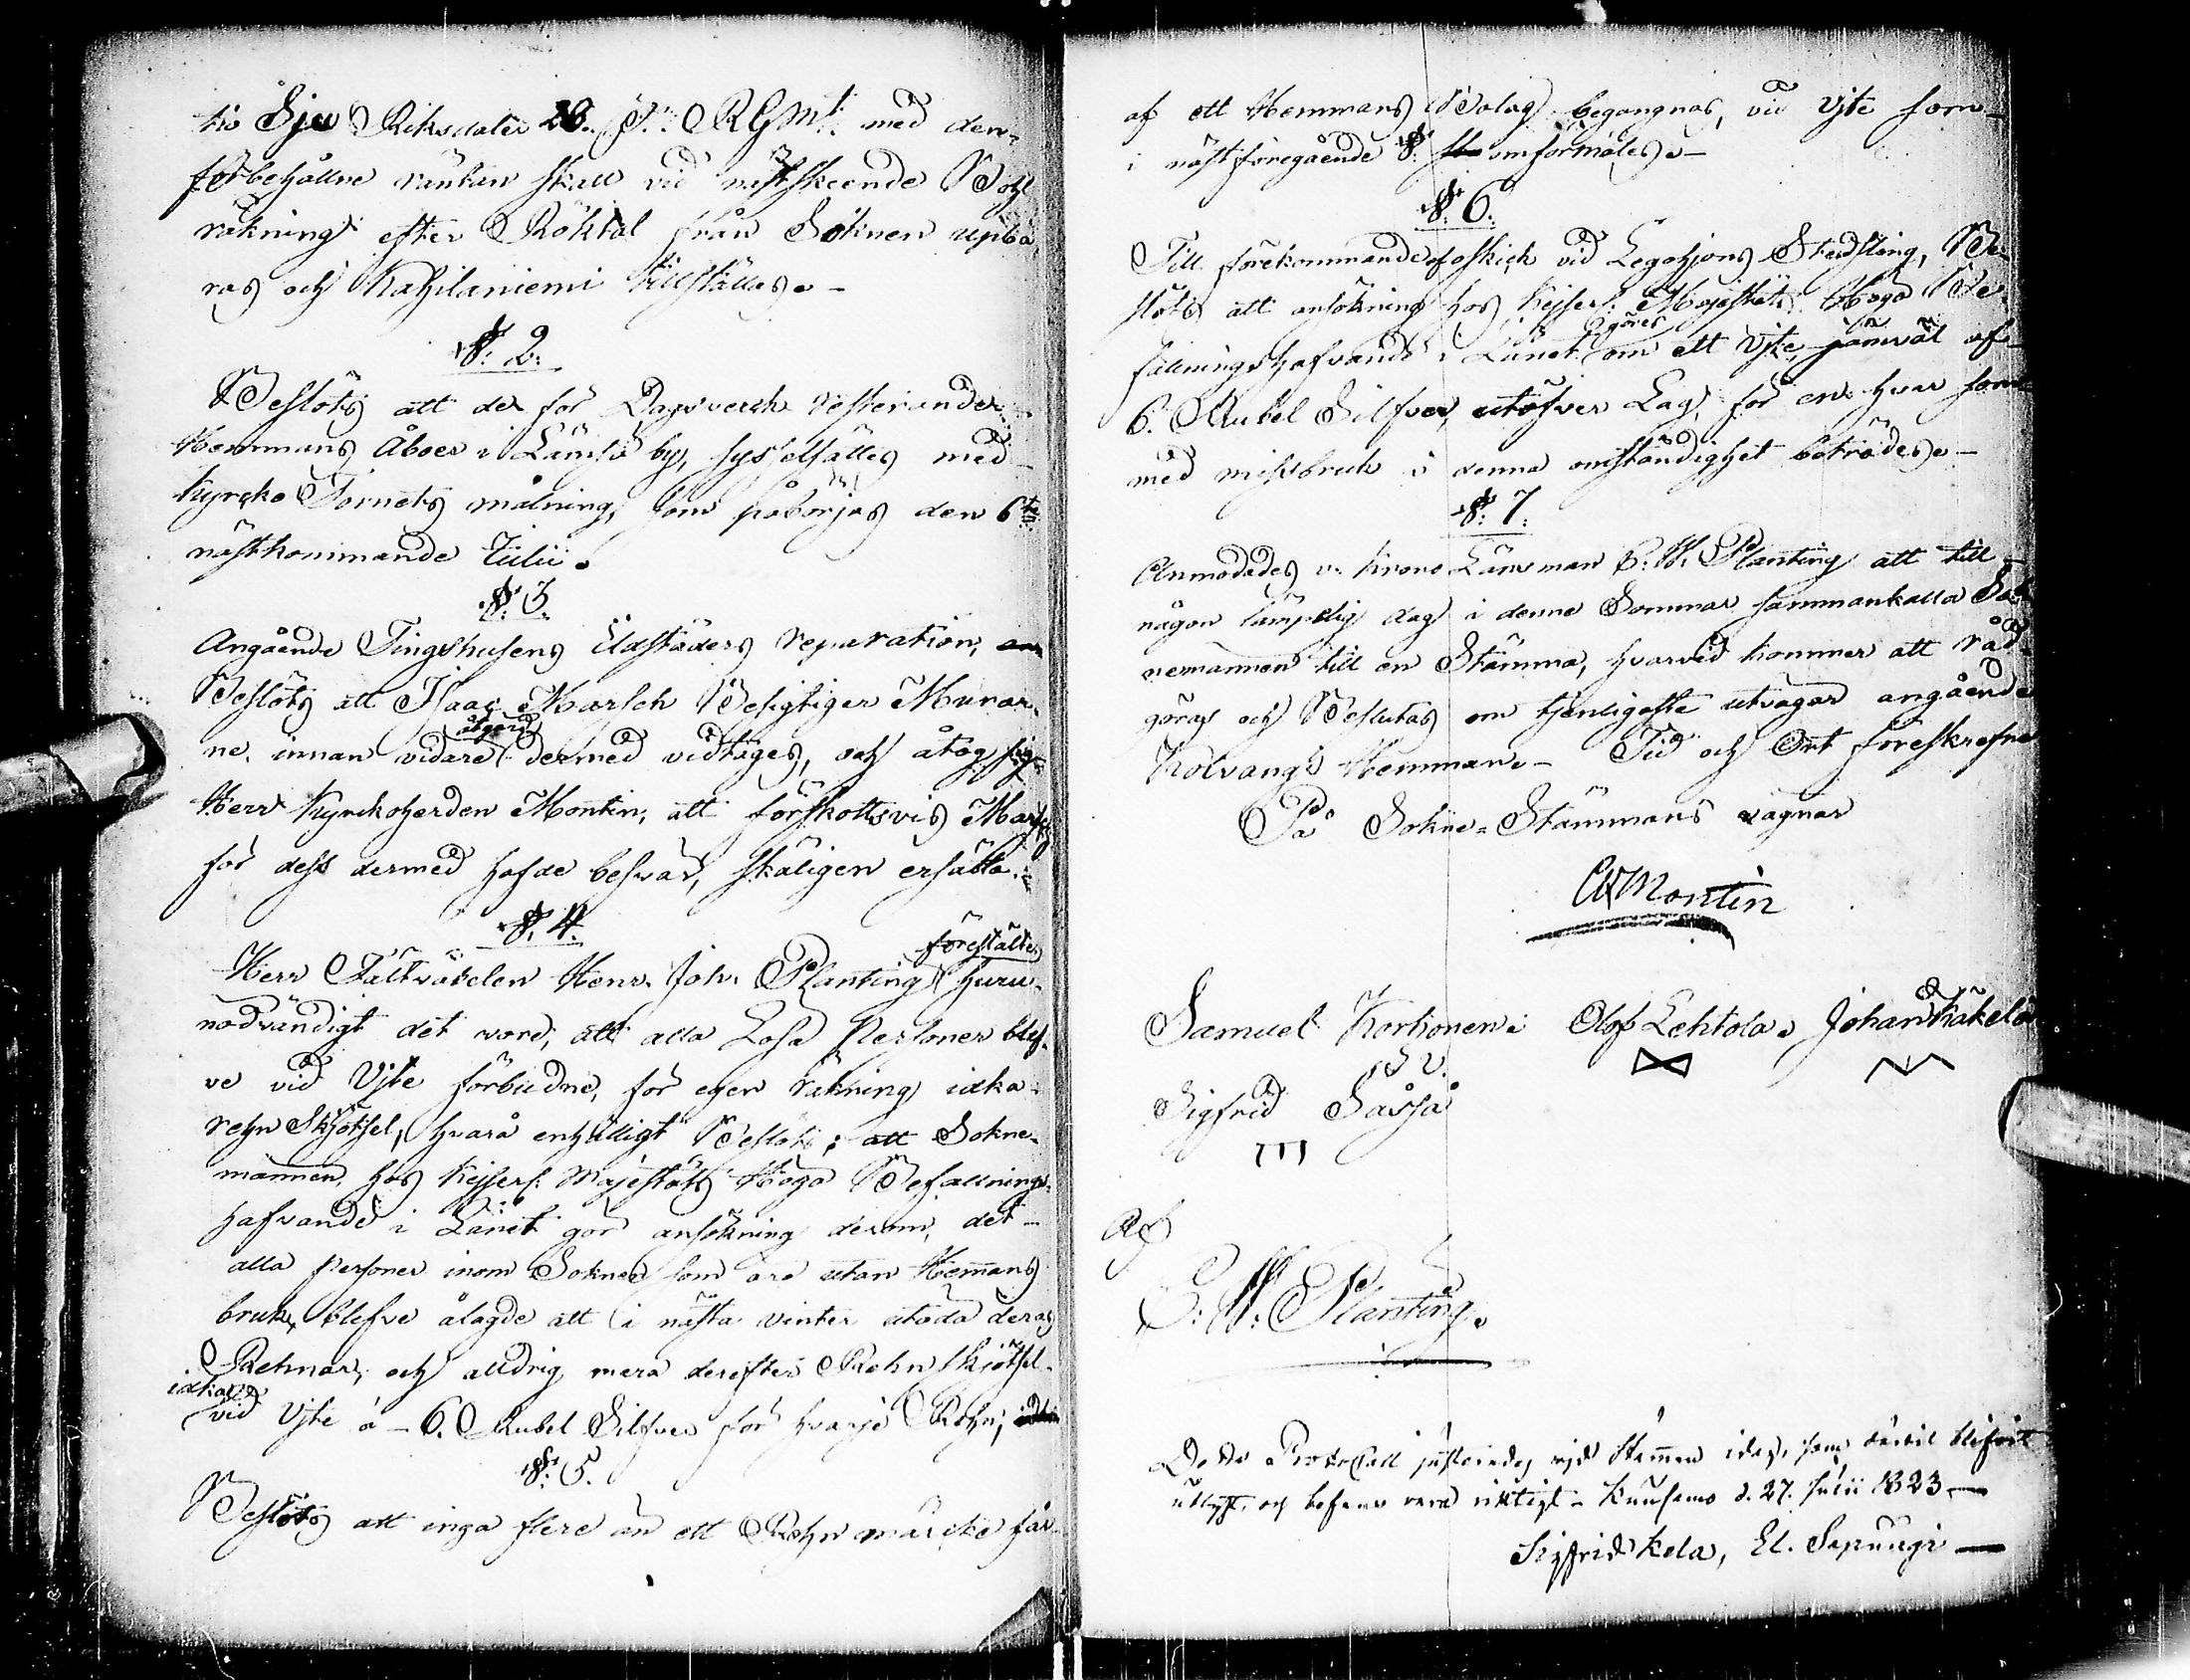 tio Sju Riksdaler 26. s. RGMt. med den
förbehållne räntan skall vid nästskeende Bohl
räkning efter Röktal från Soknen upbä-
ras och Kahilaniemi tillställes.
§. 2.
Beslöts att de för Dagsverck resterande
Hemmans Åboer i Lämsä by, sysselsättes med
Kyrcko Tornets målning, som påbörjas den 6te
nästkommande Julii.
§. 3.
Angående Tingshusens Eldstäders reparation,
Beslöts att Isaac Marsch Besigtiger Murar-
ne, innan vidare åtgärd dermed vidtages, och åtog sig
Herr Kyrckoherden Montin, att förskottsvis Marsch
för dess dermed hafde besvär, skäligen ersätta.
§. 4.
Herr Fältväbelen Henr. Joh. Planting förestälte huru
nödvändigt det vore, att alla Lösa Personer blef-
ve vid Vjte förbudne, för egen räkning idka
rehn Skjötsel, hvarå enhälligt Beslöts: att Sokne-
männen, hos Kejserl. Majestäts Höga Befallnings-
hafvande i Länet gör ansökning derom, det
alla personer inom Soknen som äro utan Hemmans
bruk, blefve ålagde att i nästa vinter utöda deras
Rehnar, och alldrig mera derefter Rehn skjötsel
idka vid Vjte à 6. Rubel Silfver för hvarje Rehn;
§. 5.
Beslöts att inga flere än ett Rehn märcke får
af ett Hemmans Bolag begangnas, vid Vjte som
i näst föregående §. omförmäles.
§. 6.
Till förekommande af oskick vid Legohjons Städsling, Be-
slöts att ansökning hos Kejserl. Majestäts Höga Be-
fallningshafvande i Länet göres om ett Vjte, jämväl af
6. Rubel Silfver, utöfver Lag, för en hvar som
med missbruk i denna omständighet beträdes.
§. 7.
Anmodades v. Krono Länsman E. W. Planting att till
någon lämpelig dag i denne Sommar sammankalla Sok-
nemännen till en Stämma, hvarvid kommer att råd-
göras och Beslutas om tjenligaste utvägar angående
Kolvangi Hemman. Tid och Ort föreskrefne
På Sokne-Stämmans vägnar
Montin
Samuel Kortionen Olof Lehtola Johan Käkelä
Sigfrid Säsjä
Af
E. W. Planting.
Detta Protocall justerades wid Stämman idag, som dertil blifvit
utlyst, och befans vara riktigt. Kuusamo d. 27. Julii 1823.
Sigfrid Kela, El. Sepuugi